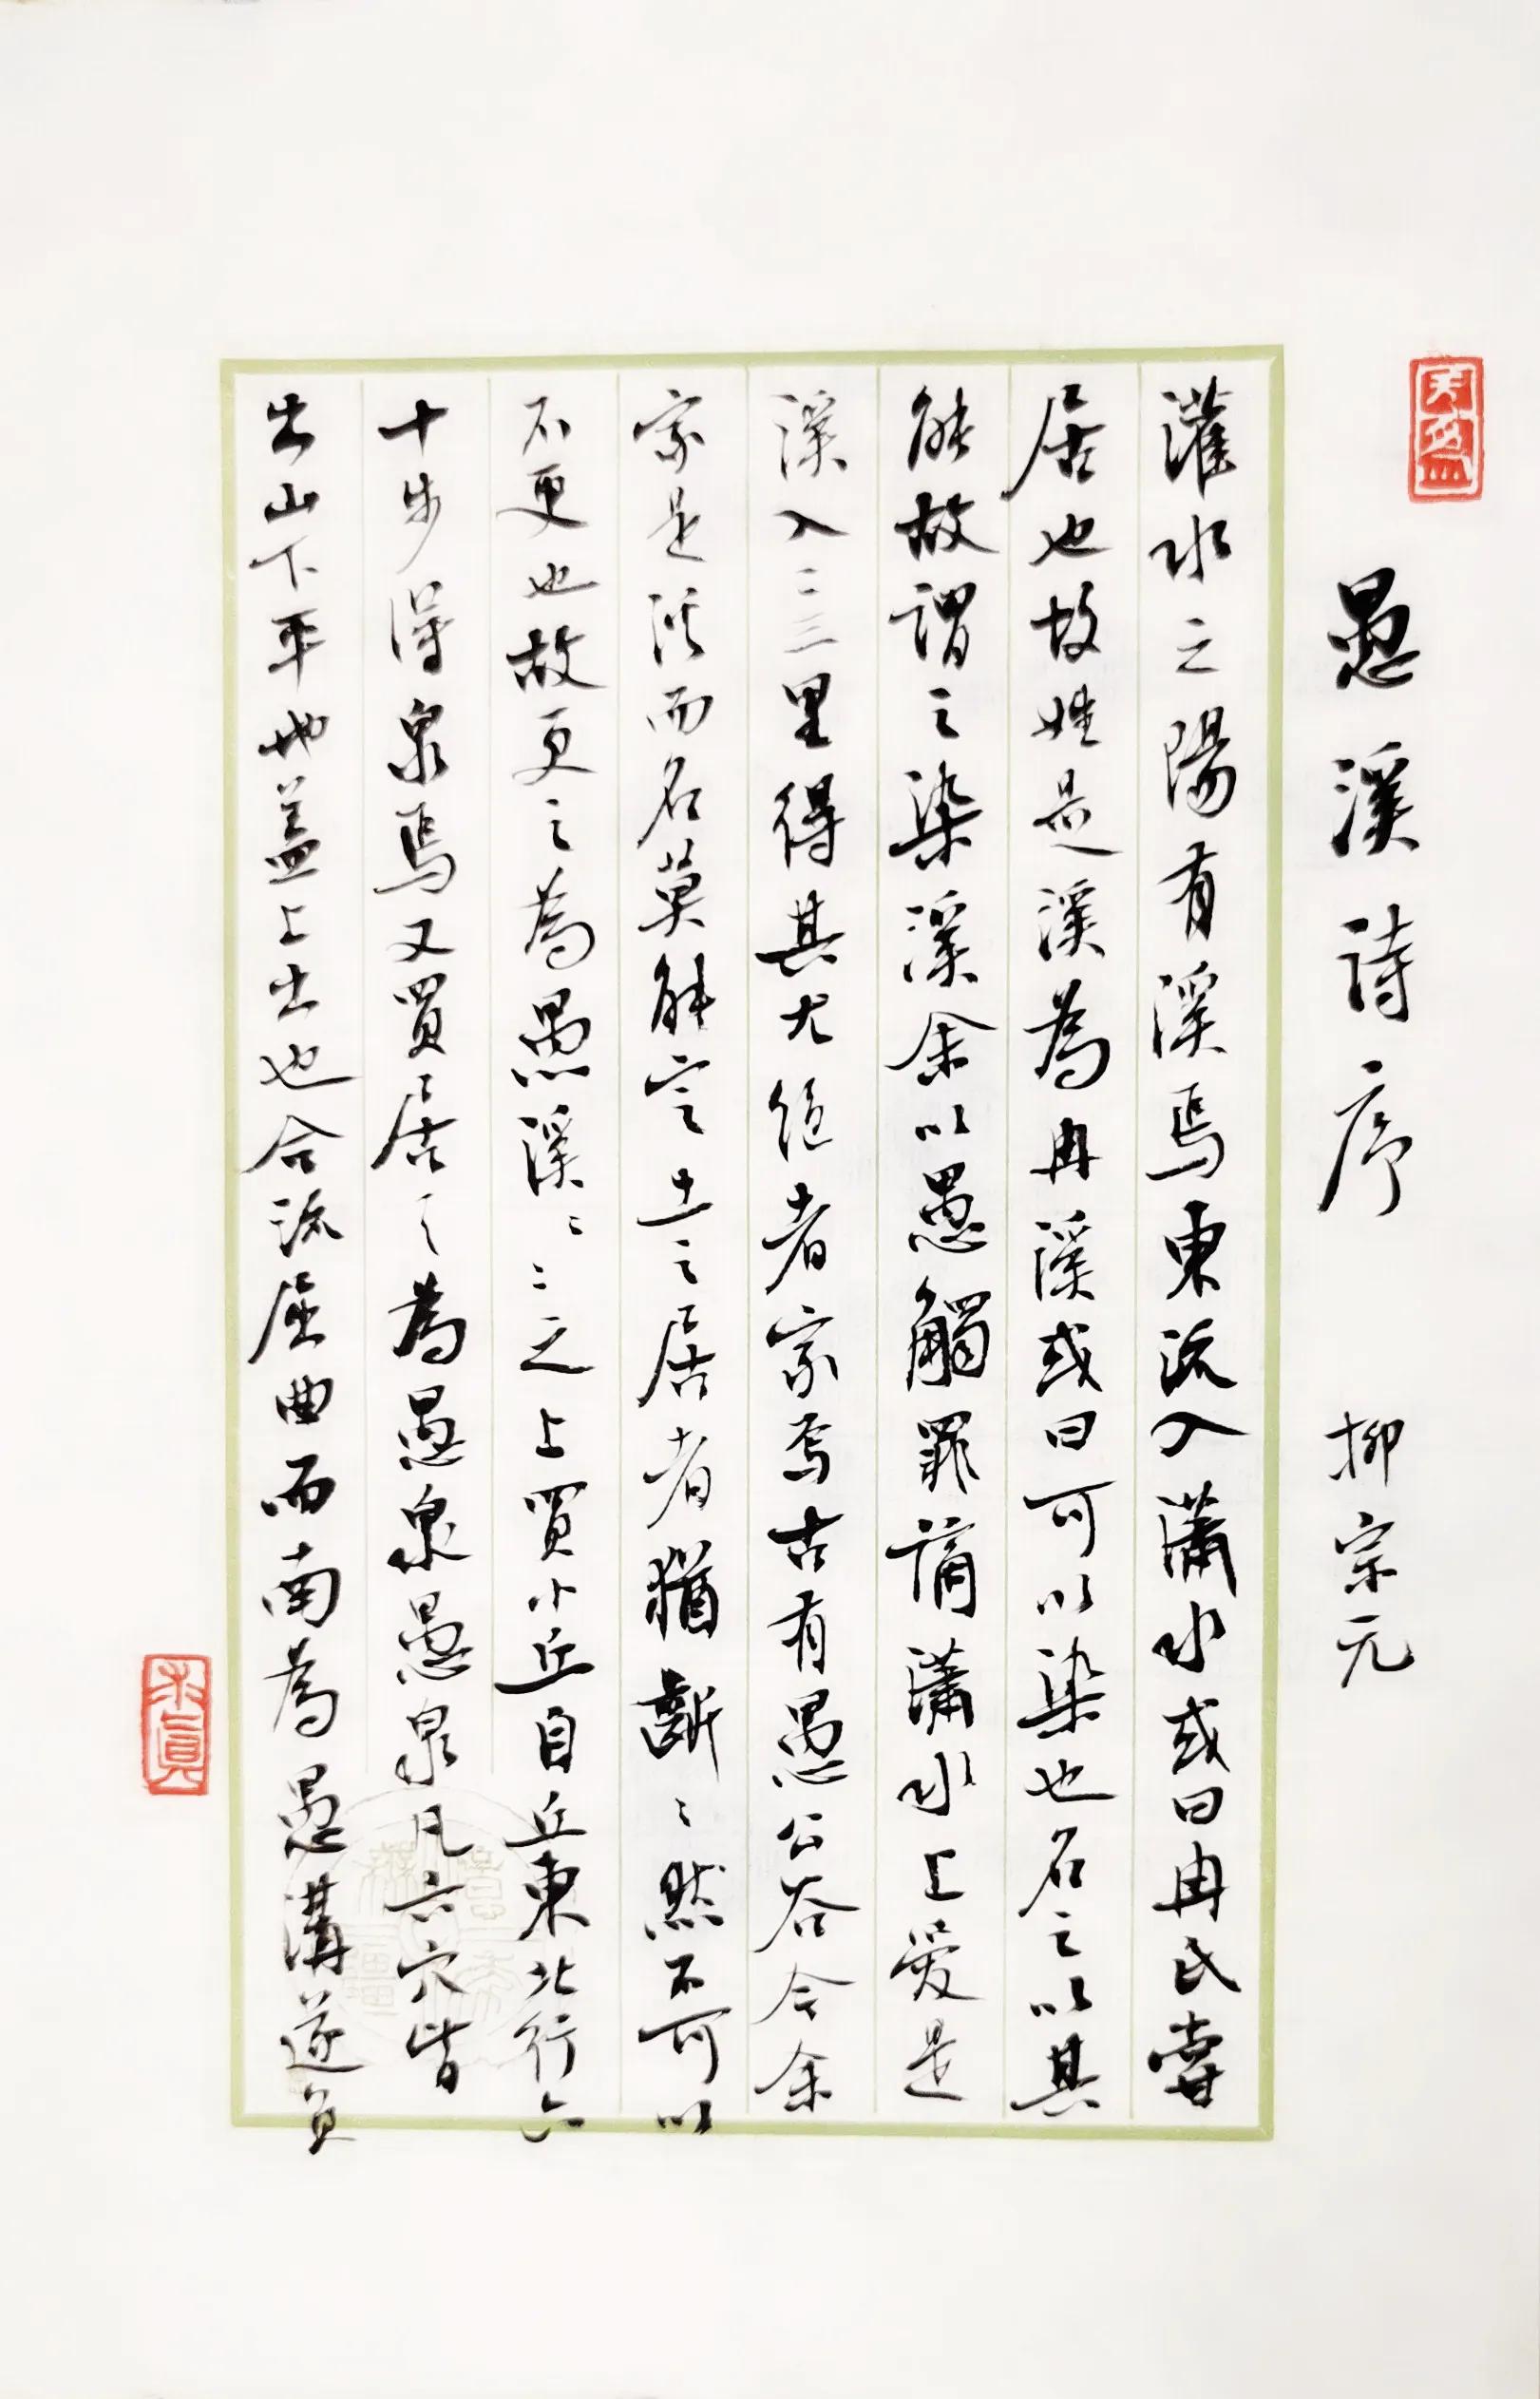 愚溪詩序 柳宗元
灌水之陽有溪焉東流入瀟水或曰冉氏嘗
居也故姓是溪為冉溪或曰可以染也名之以其
能故謂之染溪余以愚觸罪謫瀟水上愛是
溪入二三里得其尤絕者家焉古有愚公谷今余
家是溪而名莫能定土之居者猶齗〻然不可以
不更也故更之為愚溪〻〻之上買小丘自丘東北行六
十步得泉焉又買居之為愚泉愚泉凡六穴皆
出山下平地蓋上出也合流屈曲而南為愚溝遂負